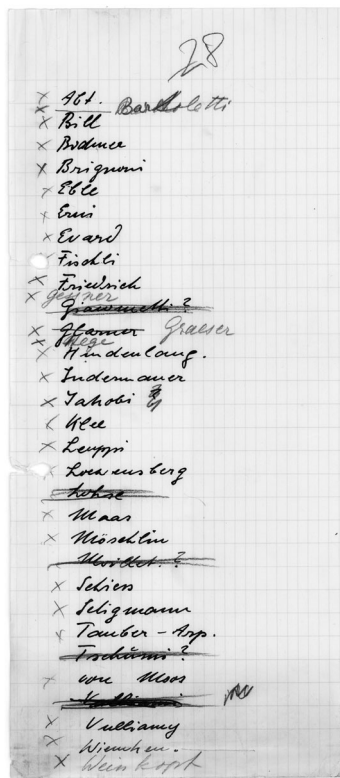 28
× Abt.
× Bartholetti
× Bill
× Bodmer
× Brignoni
× Eble
× Erni
× Evard
Fischli
× Friedrich
× Gessner
Giacometti?
× Glarner Graeser
× Hege
× Hindenlang.
× Indermauer
× Jakobi
× Klee
× Leuppi
× Loewensberg
Lohse
× Maas
× Möschlin
Moillet.?
× Schiess
× Seligmann
× Tauber-Arp.
Tschumi?
× von Moos
× Vulliamy
× Wiemken.
× Weinkopf